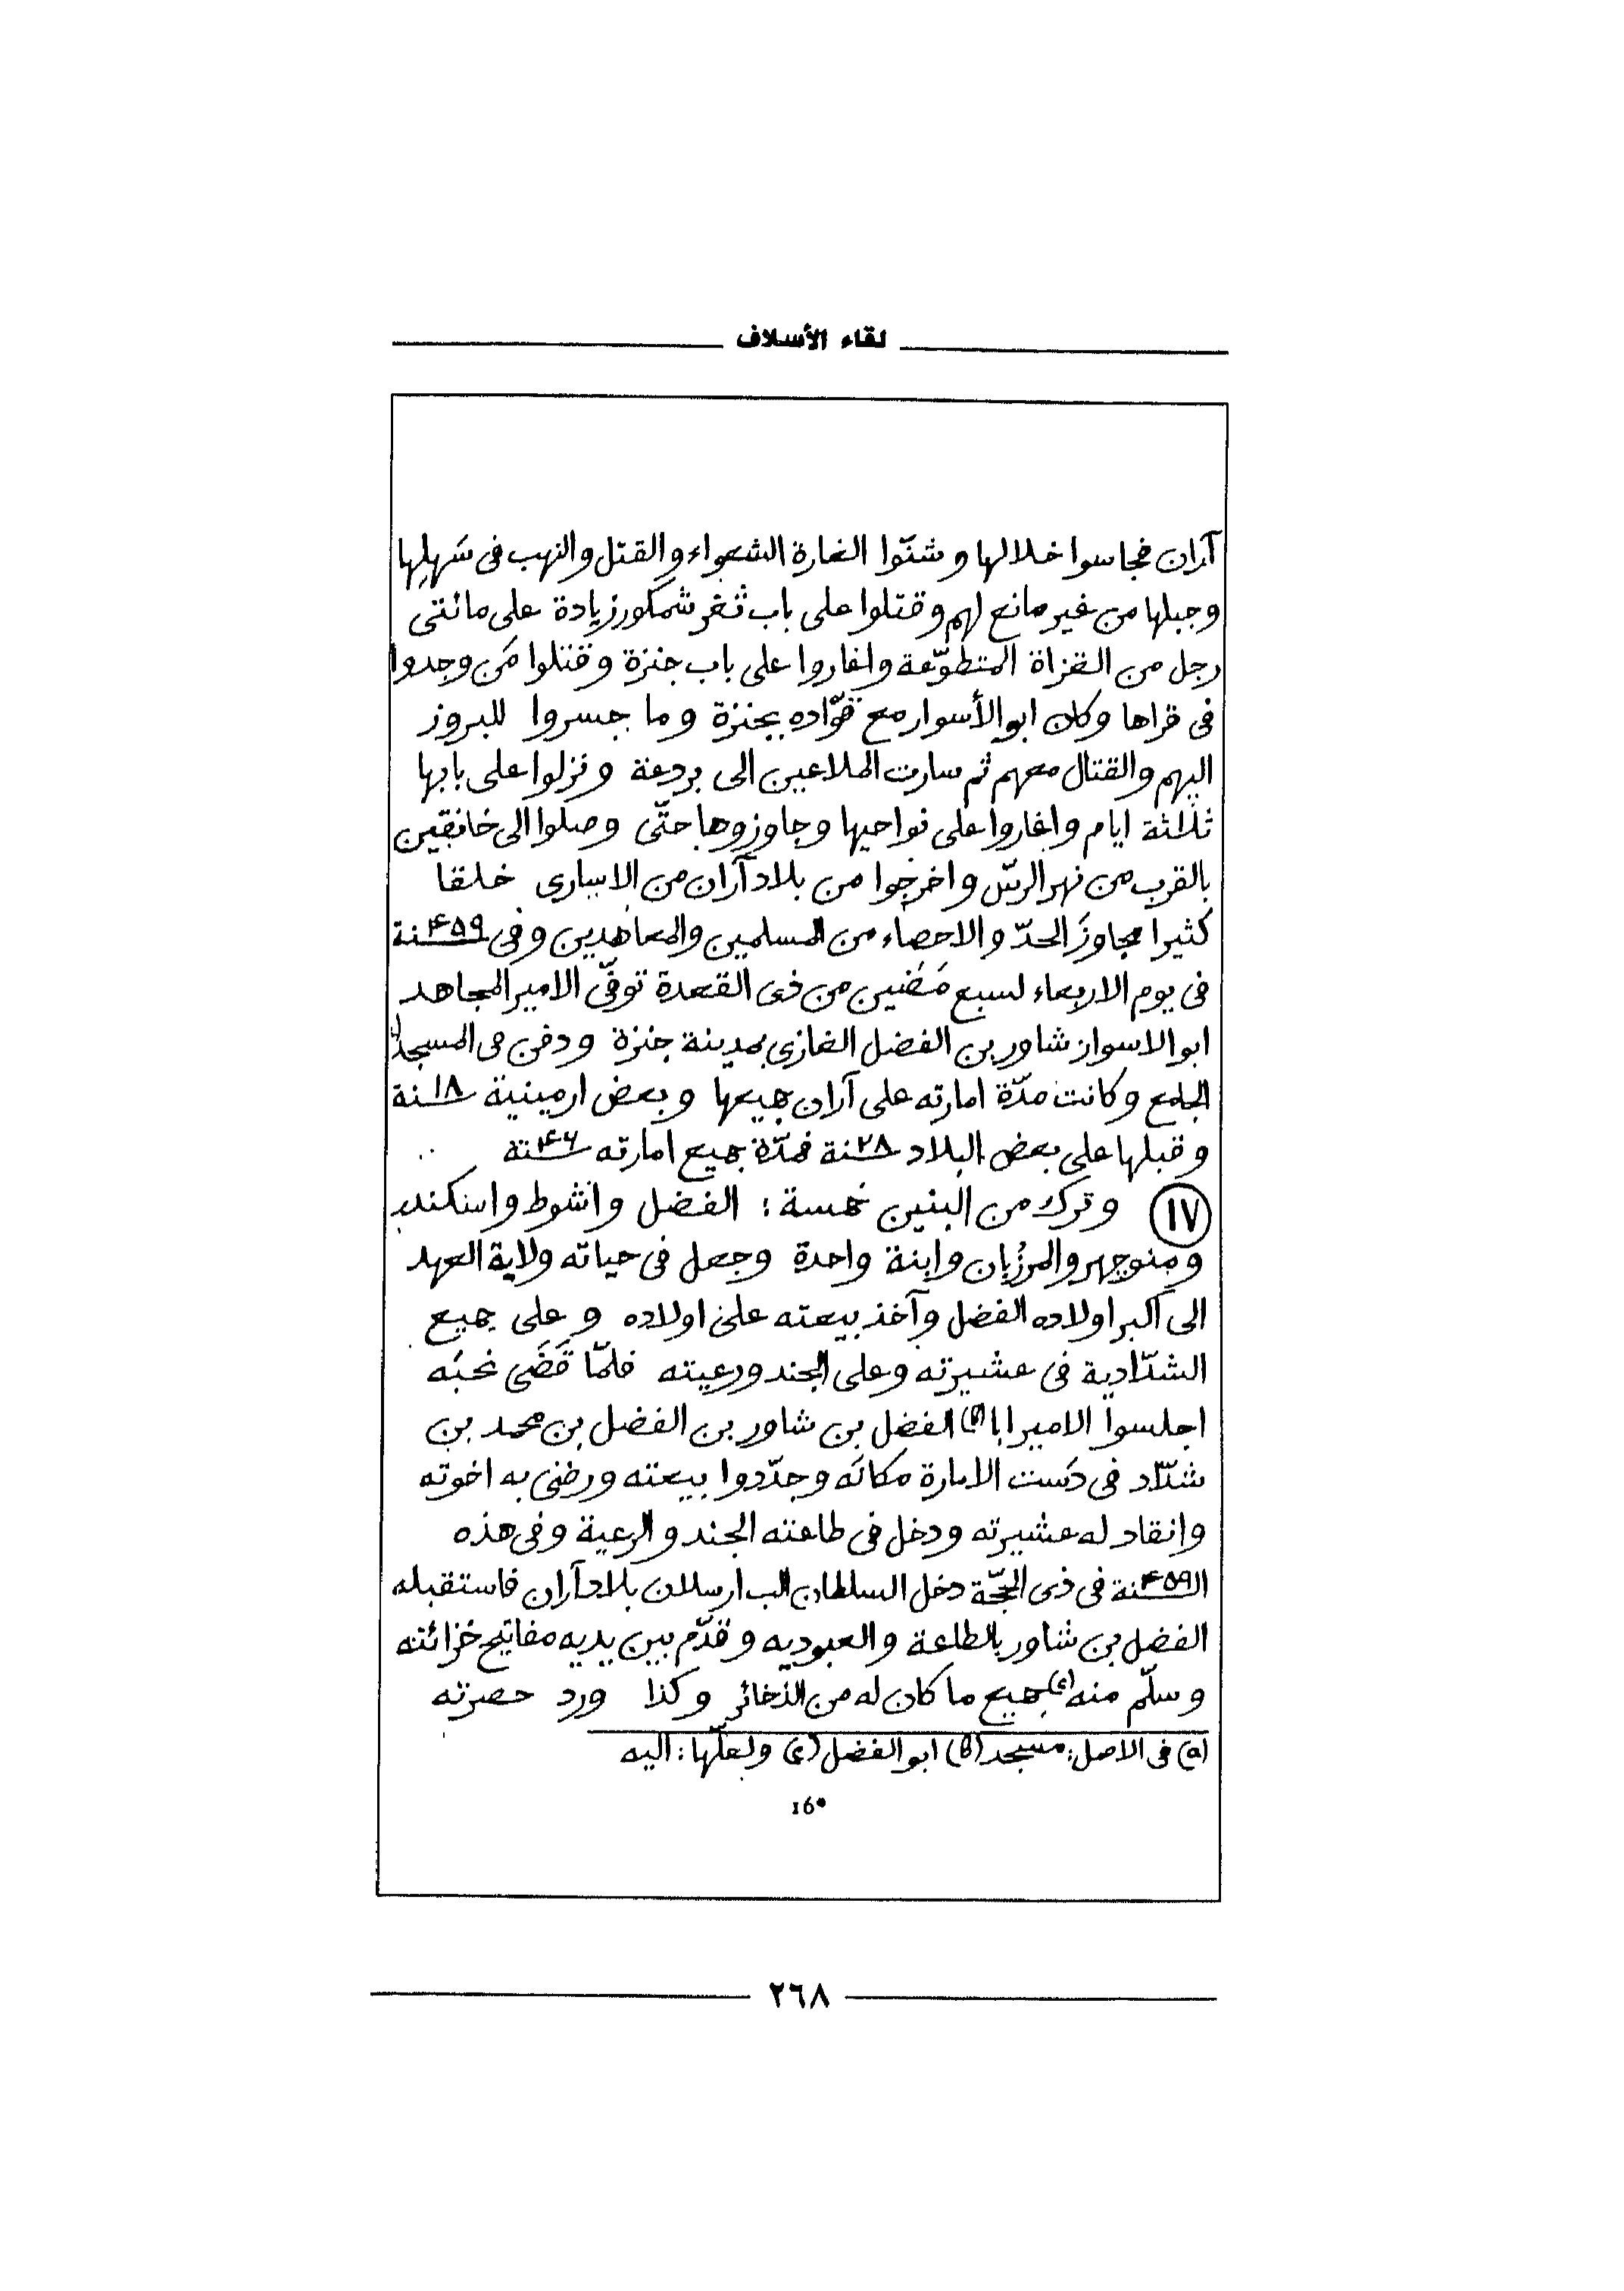 لقاء الأسلاف
آران فجاسوا خلالها وشنّوا الغارة الشعواء والقتل والنهب فى سَهلِها
وجبلها من غير مانع لهم وقتلوا على باب ثغر شمكور زيادة على مائتى
رجل من الغزاة المتطوّعة واغاروا على باب جنزة وقتلوا مَن وجدوا
فى قراها وكان ابو الأسوار مع قوّاده بجنزة وما جسروا للبروز
اليهم والقتال معهم ثم سارت الملاعين الى بردعة ونزلوا على بابها
ثلثة ايام واغاروا على نواحيها وجاوزوها حتّى وصلوا الى خانقين
بالقرب من نهر الرسّ واخرجوا من بلاد آران من الاسارى خلقا
كثيرا مجاوزَ الحدّ والاحصاء من المسلمين والمعاهدين وفى ۴۵۹ سنة
فى يوم الاربعاء لسبع مَضَين من ذى القعدة توفّى الامير المجاهد
ابو الاسوار شاور بن الفضل الغازى بمدينة جنزة ودفن فى المسجد
الجامع وكانت مدّة امارته على آران جميعها وبعض ارمينية ١٨ سنة
وقبلها على بعض البلاد ٢٨ سنة فمدّة جميع امارته ۴۶ سنة
(١٧) وترك من البنين خمسة : الفضل واشوط واسكندر
ومنوجهر والمرزُبان وابنة واحدة وجعل فى حياته ولاية العهد
الى اكبر اولاده الفضل وآخذ بيعته على اولاده وعلى جميع
الشدّادية فى عشيرته وعلى الجند ورعيته فلمّا قَضَى نحبَه
اجلسوا الامير ابا (b) الفضل بن شاور بن الفضل بن محمد بن
شدّاد فى دَست الامارة مكانَه وجدّدوا بيعته ورضى به اخوته
وانقاد له عشيرته ودخل فى طاعته الجند والرعية وفى هذه
السنة ۴۵۹ فى ذى الحجّة دخل السلطان الب ارسلان بلاد آران فاستقبله
الفضل بن شاور بالطاعة والعبوديه وقدّم بين يديه مفاتيح خزائنه
وسلّم منه (c) جميع ما كان له من الذخائر وكذا ورد حضرته
(a) فى الاصل: مسجد (b) ابو الفضل (c) ولعلّها: اليه
16*
٢٦٨